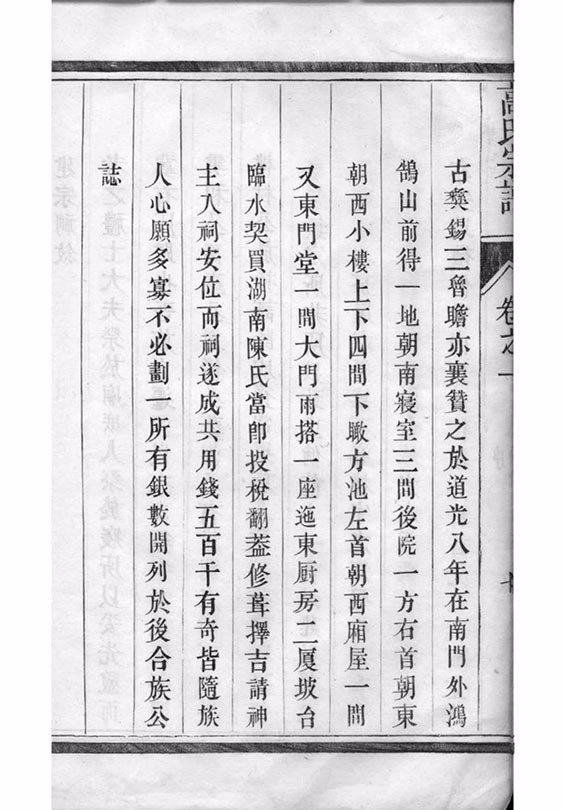 高氏宗譜
卷之一
古彝錫三魯瞻亦襄贊之於道光八年在南門外鴻
鵠山前得一地朝南寢室三間後院一方右首朝東
朝西小樓上下四間下瞰方池左首朝西廂屋一間
又東門堂一間大門雨搭一座迤東厨房二厦坡台
臨水契買湖南陳氏當卽投稅翻葢修葺擇吉請神
主入祠安位而祠遂成共用錢五百千有奇皆隨族
人心願多寡不必劃一所有銀數開列於後合族公
誌